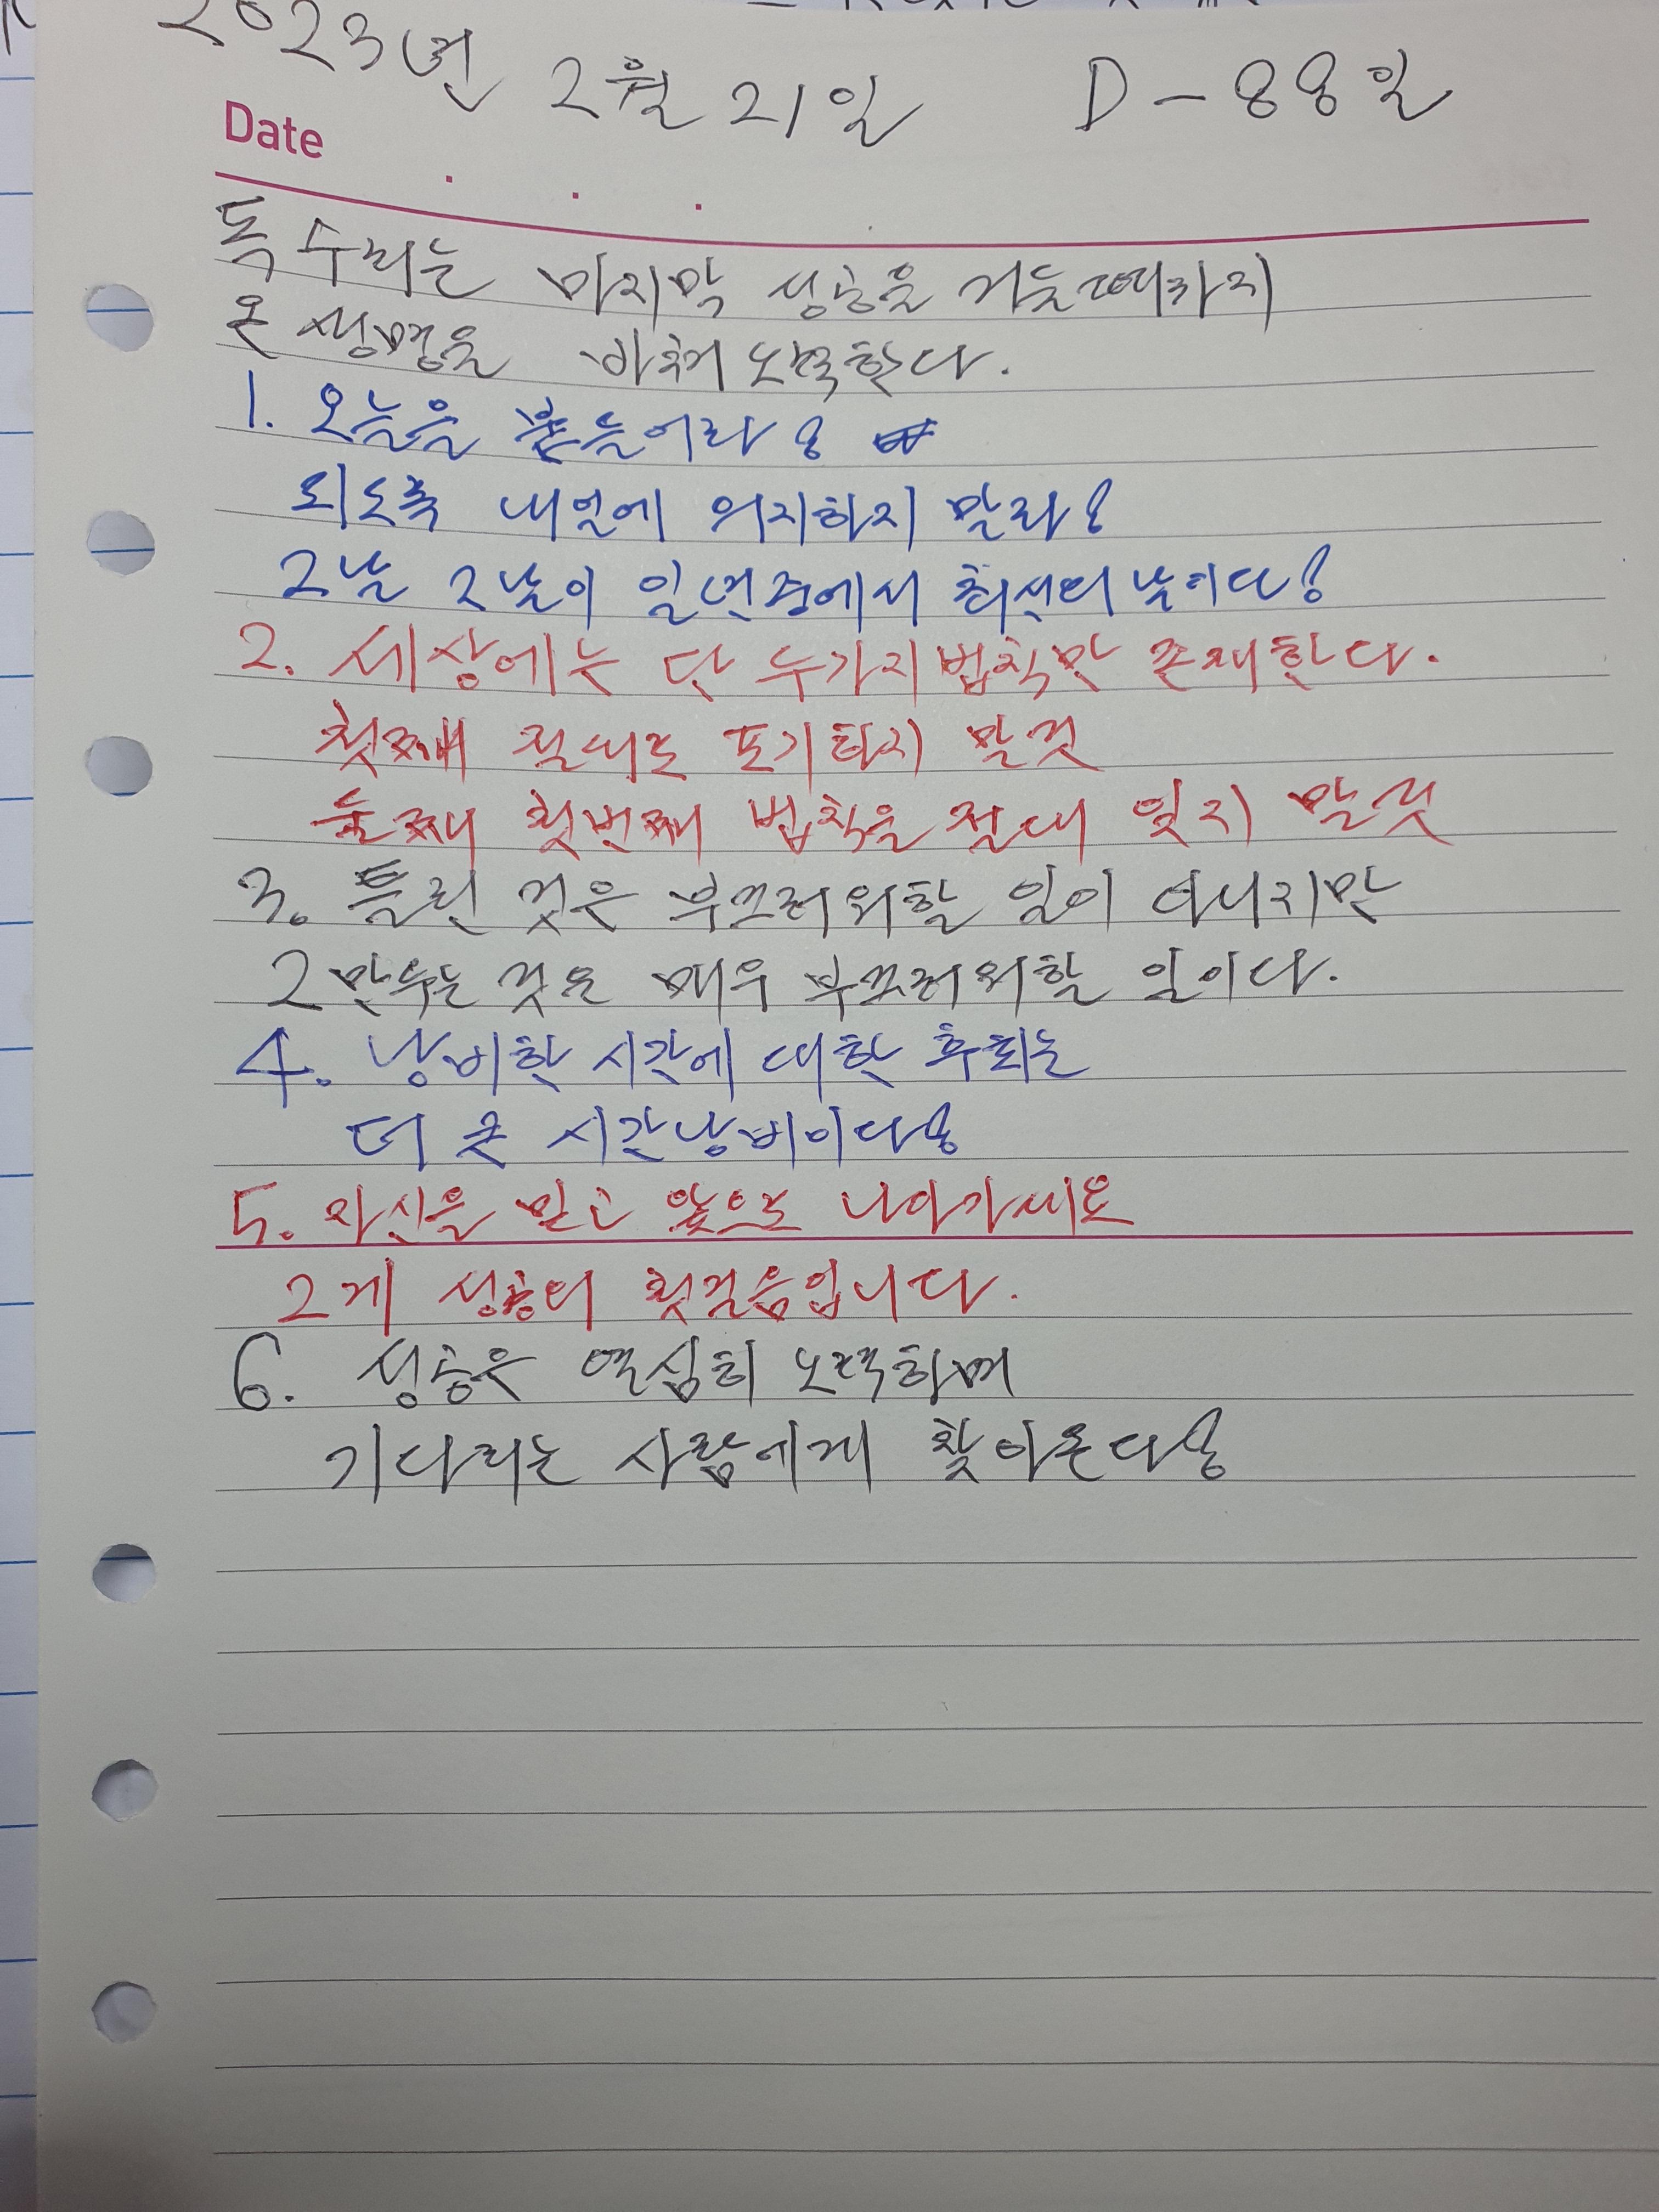 2023년 2월 21일 D-88일
Date
독수리는 마지막 성공을 거둘때까지
온 생명을 바쳐 노력한다.
1. 오늘을 붙들어라!
되도록 내일에 의지하지 말라!
그날 그날이 일년중에서 최선의 날이다!
2. 세상에는 단 두가지 법칙만 존재한다.
첫째 절대로 포기하지 말것
둘째 첫번째 법칙을 절대 잊지 말것
3. 틀린 것은 부끄러워할 일이 아니지만
그만두는 것은 매우 부끄러워할 일이다.
4. 낭비한 시간에 대한 후회는
더 큰 시간낭비이다!
5. 자신을 믿고 앞으로 나아가세요
그게 성공의 첫걸음입니다.
6. 성공은 열심히 노력하며
기다리는 사람에게 찾아온다!